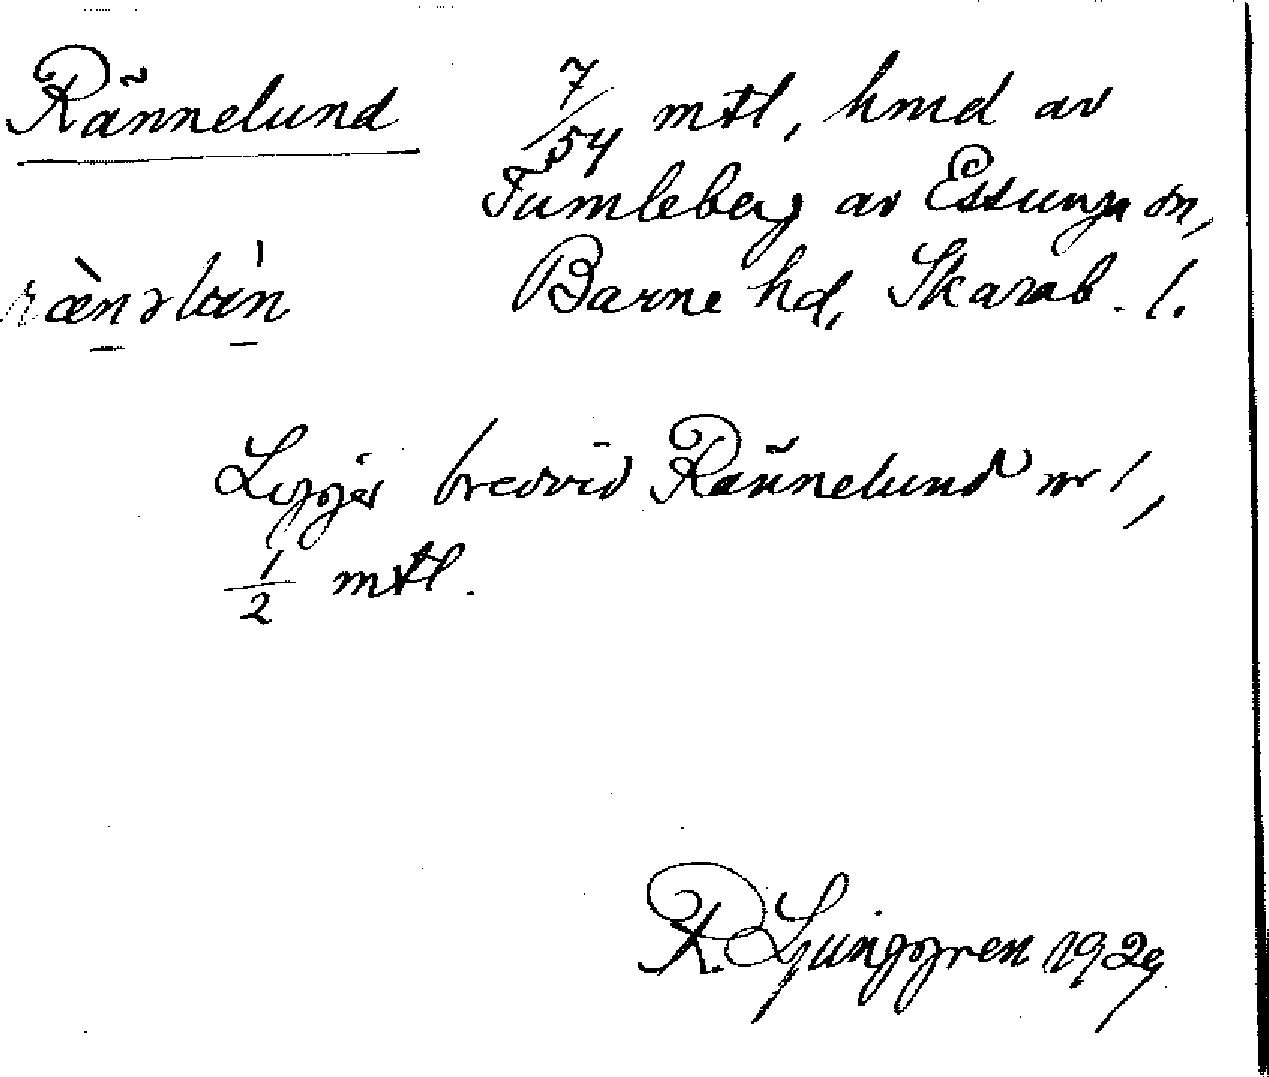 Rännelund 7/54 mtl, hmd av
Tumleberg av Essunga sn,
Barne hd, Skarab. l.
Ligger bredvid Rännelund nr 1,
1/2 mtl.
R. Ljunggren 1929